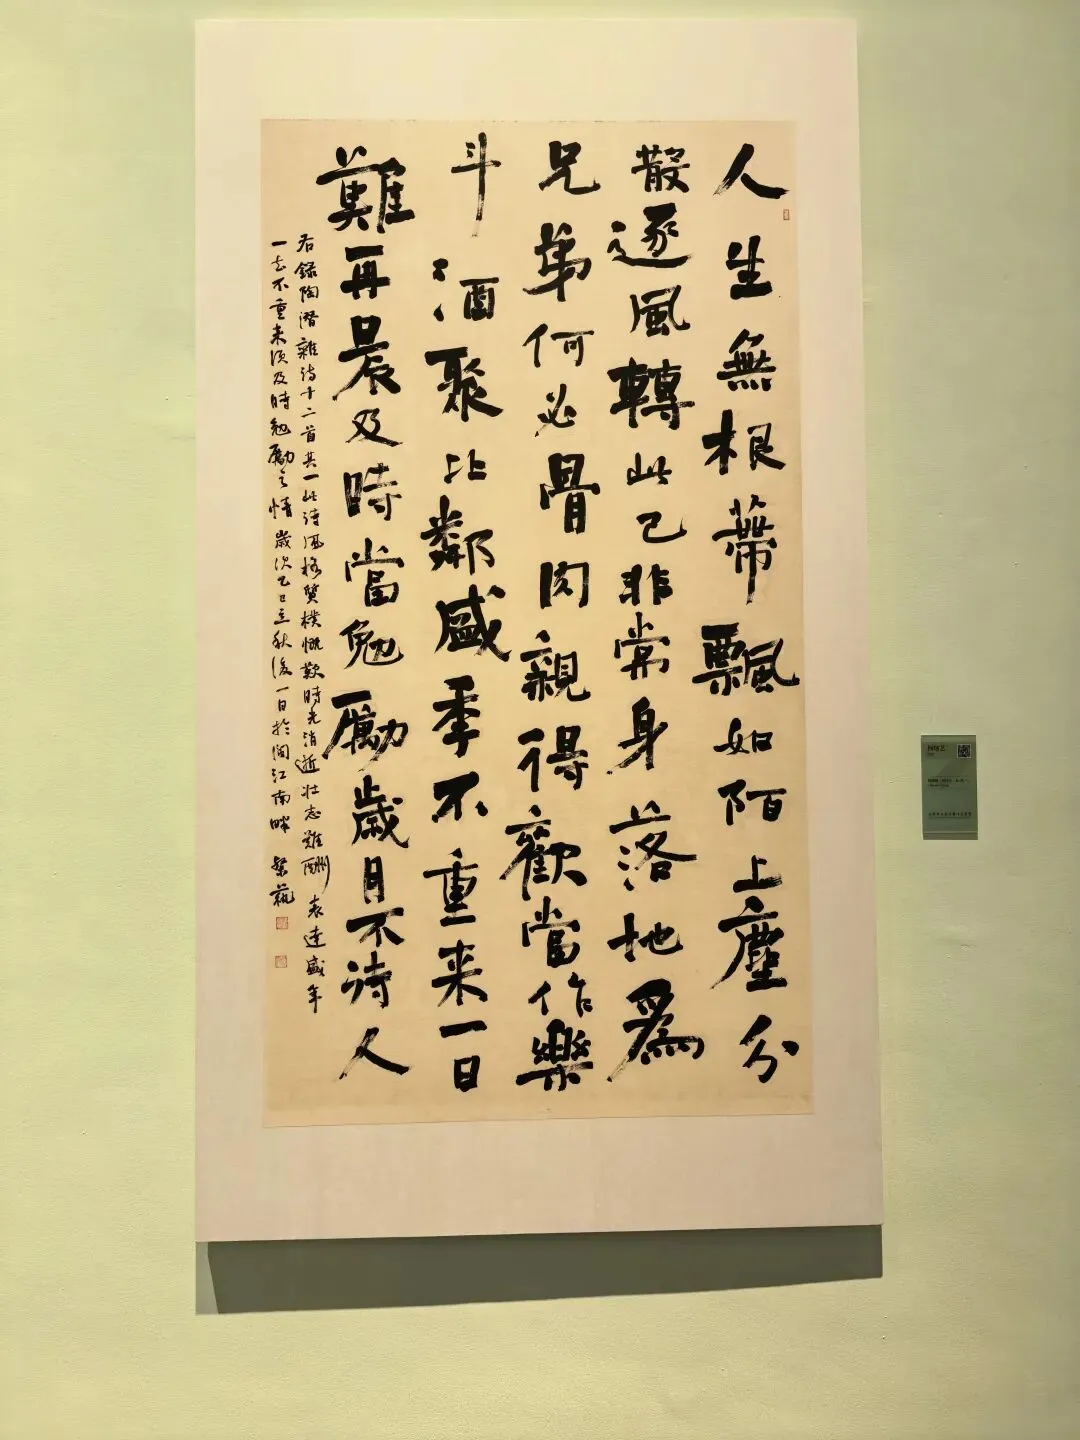 人生無根蒂飄如陌上塵分
散逐風轉此已非常身落地爲
兄弟何必骨肉親得歡當作樂
斗酒聚比鄰盛季不重来一日
難再晨及時當勉勵歲月不待人
右録陶潛雜诗十二首其一此诗風格質樸慨歎時光消逝壮志難酬表達盛年
一去不重来须及時勉勵之情歲次乙巳立秋後一日於閩江南畔